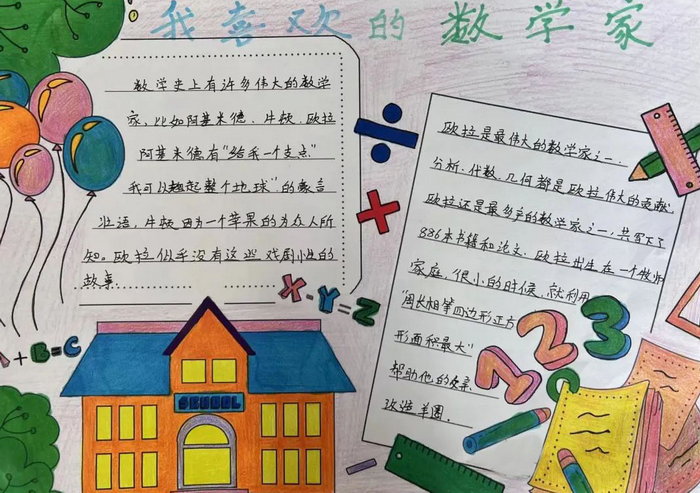 我喜欢的数学家
数学史上有许多伟大的数学
家，比如阿基米德、牛顿、欧拉
阿基米德有“给我一个支点”
我可以翘起整个地球”的豪言
壮语，牛顿因为一个苹果的为众人所
知。欧拉似乎没有这些戏剧化的
故事.
欧拉是最伟大的数学家之一，
分析、代数、几何都是欧拉伟大的贡献.
欧拉还是最多产的数学家之一，共写下了
886本书籍和论文、欧拉出生在一个牧师
家庭.很小的时候，就利用
“周长相等四边形正方
形面积最大”
帮助他的父亲
改造羊圈.
X-Y=Z
A+B=C
SCHOOL
123